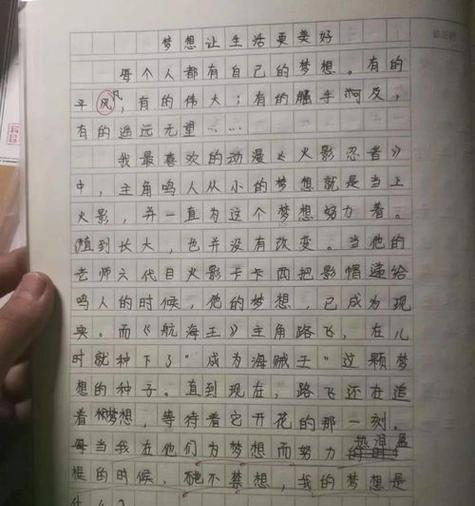 梦想让生活更美好
每个人都有自己的梦想。有的
平凡，有的伟大；有的触手可及，
有的遥远无望……
我最喜欢的动漫《火影忍者》
中，主角鸣人从小的梦想就是当上
火影，并一直为这个梦想努力着。
直到长大，也并没有改变。当他的
老师六代目火影卡卡西把影帽递给
鸣人的时候，他的梦想，已成为现
实。而《航海王》主角路飞，在儿
时就种下了"成为海贼王"这颗梦
想的种子。直到现在，路飞还在追
着梦想，等待着它开花的那一刻。
每当我在他们为梦想而努力热泪盈
的时候，禁不禁想，我的梦想是
什么？